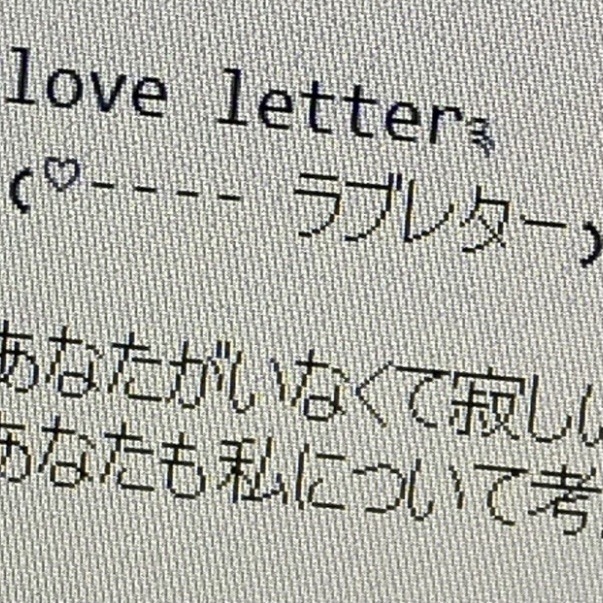 love letter
(♡---- ラブレター)
あなたがいなくて寂しい
あなたも私について考